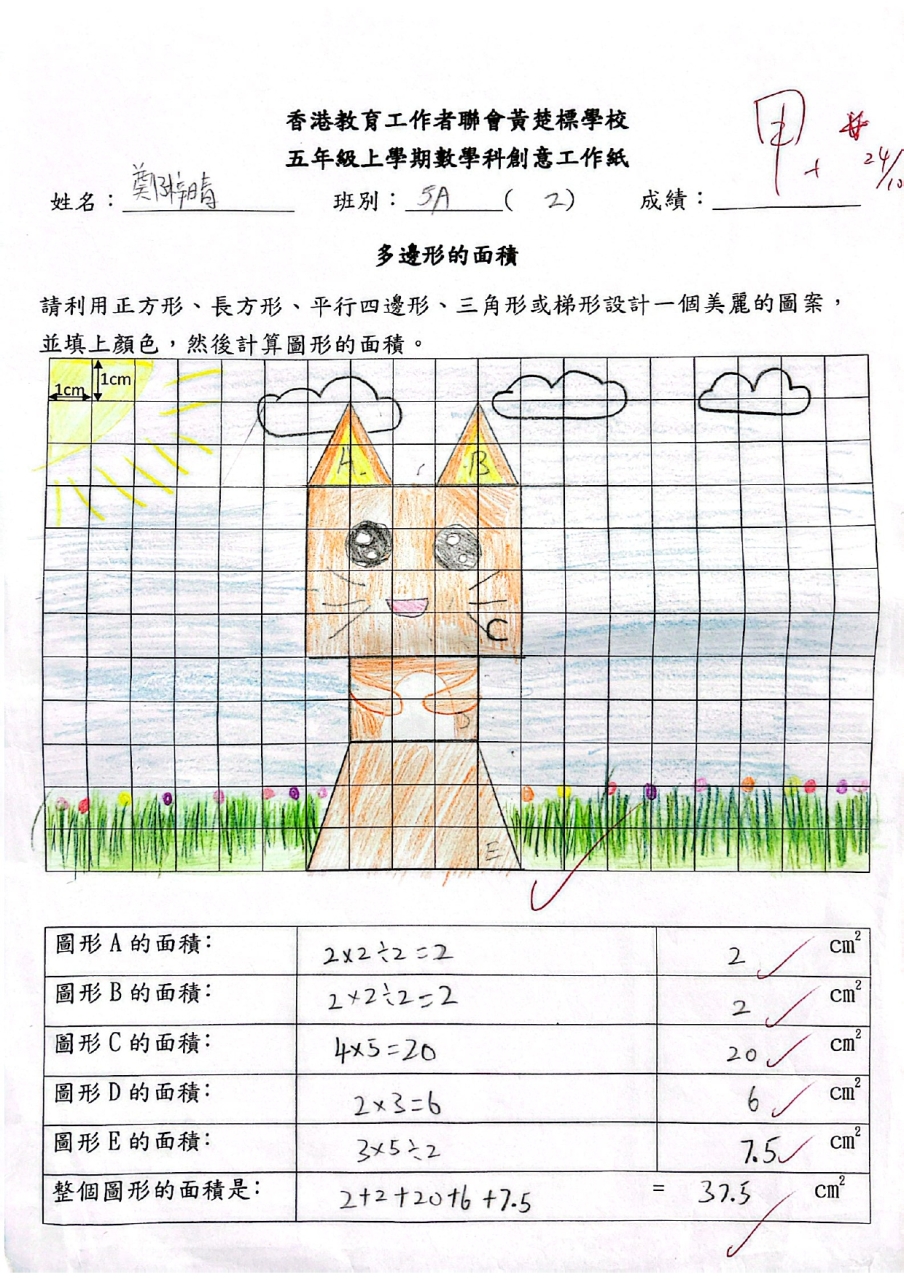 香港教育工作者聯會黃楚標學校
五年級上學期數學科創意工作紙
甲+
24/10
姓名：鄭梓晴 班別：5A ( 2) 成績：
多邊形的面積
請利用正方形、長方形、平行四邊形、三角形或梯形設計一個美麗的圖案，
並填上顏色，然後計算圖形的面積。
1cm 1cm
A B
C
D
E
圖形 A 的面積： 2×2÷2=2 2 cm²
圖形 B 的面積： 2×2÷2=2 2 cm²
圖形 C 的面積： 4×5=20 20 cm²
圖形 D 的面積： 2×3=6 6 cm²
圖形 E 的面積： 3×5÷2 7.5 cm²
整個圖形的面積是： 2+2+20+6+7.5 = 37.5 cm²